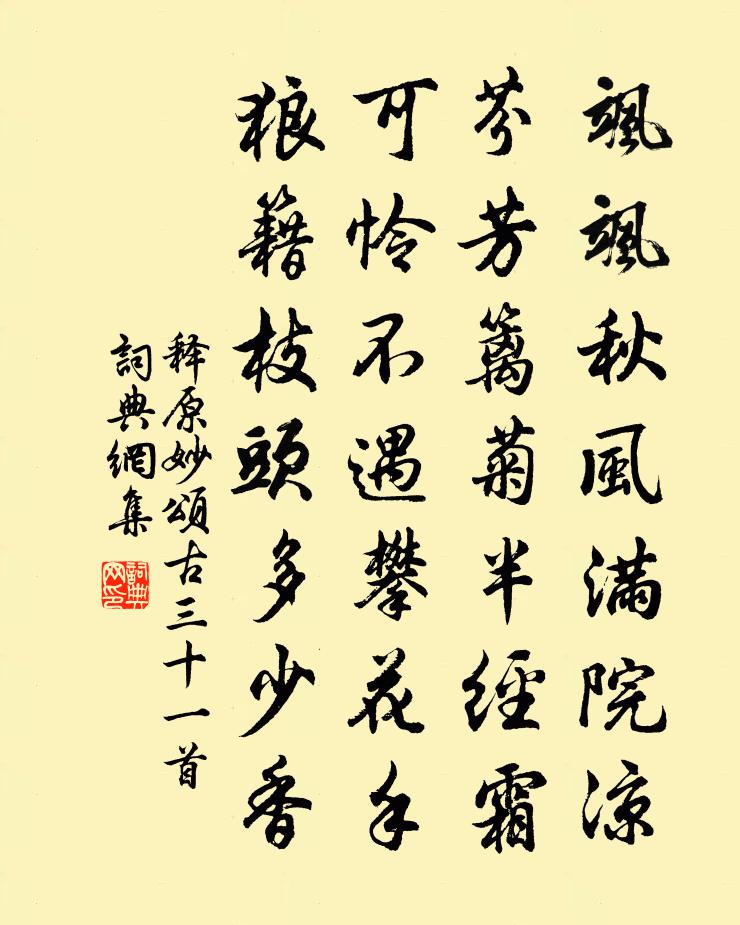 颯颯秋風滿院涼
芬芳籬菊半經霜
可怜不遇攀花手
狼籍枝頭多少香
释原妙頌古三十一首
詞典網集
詞典网印